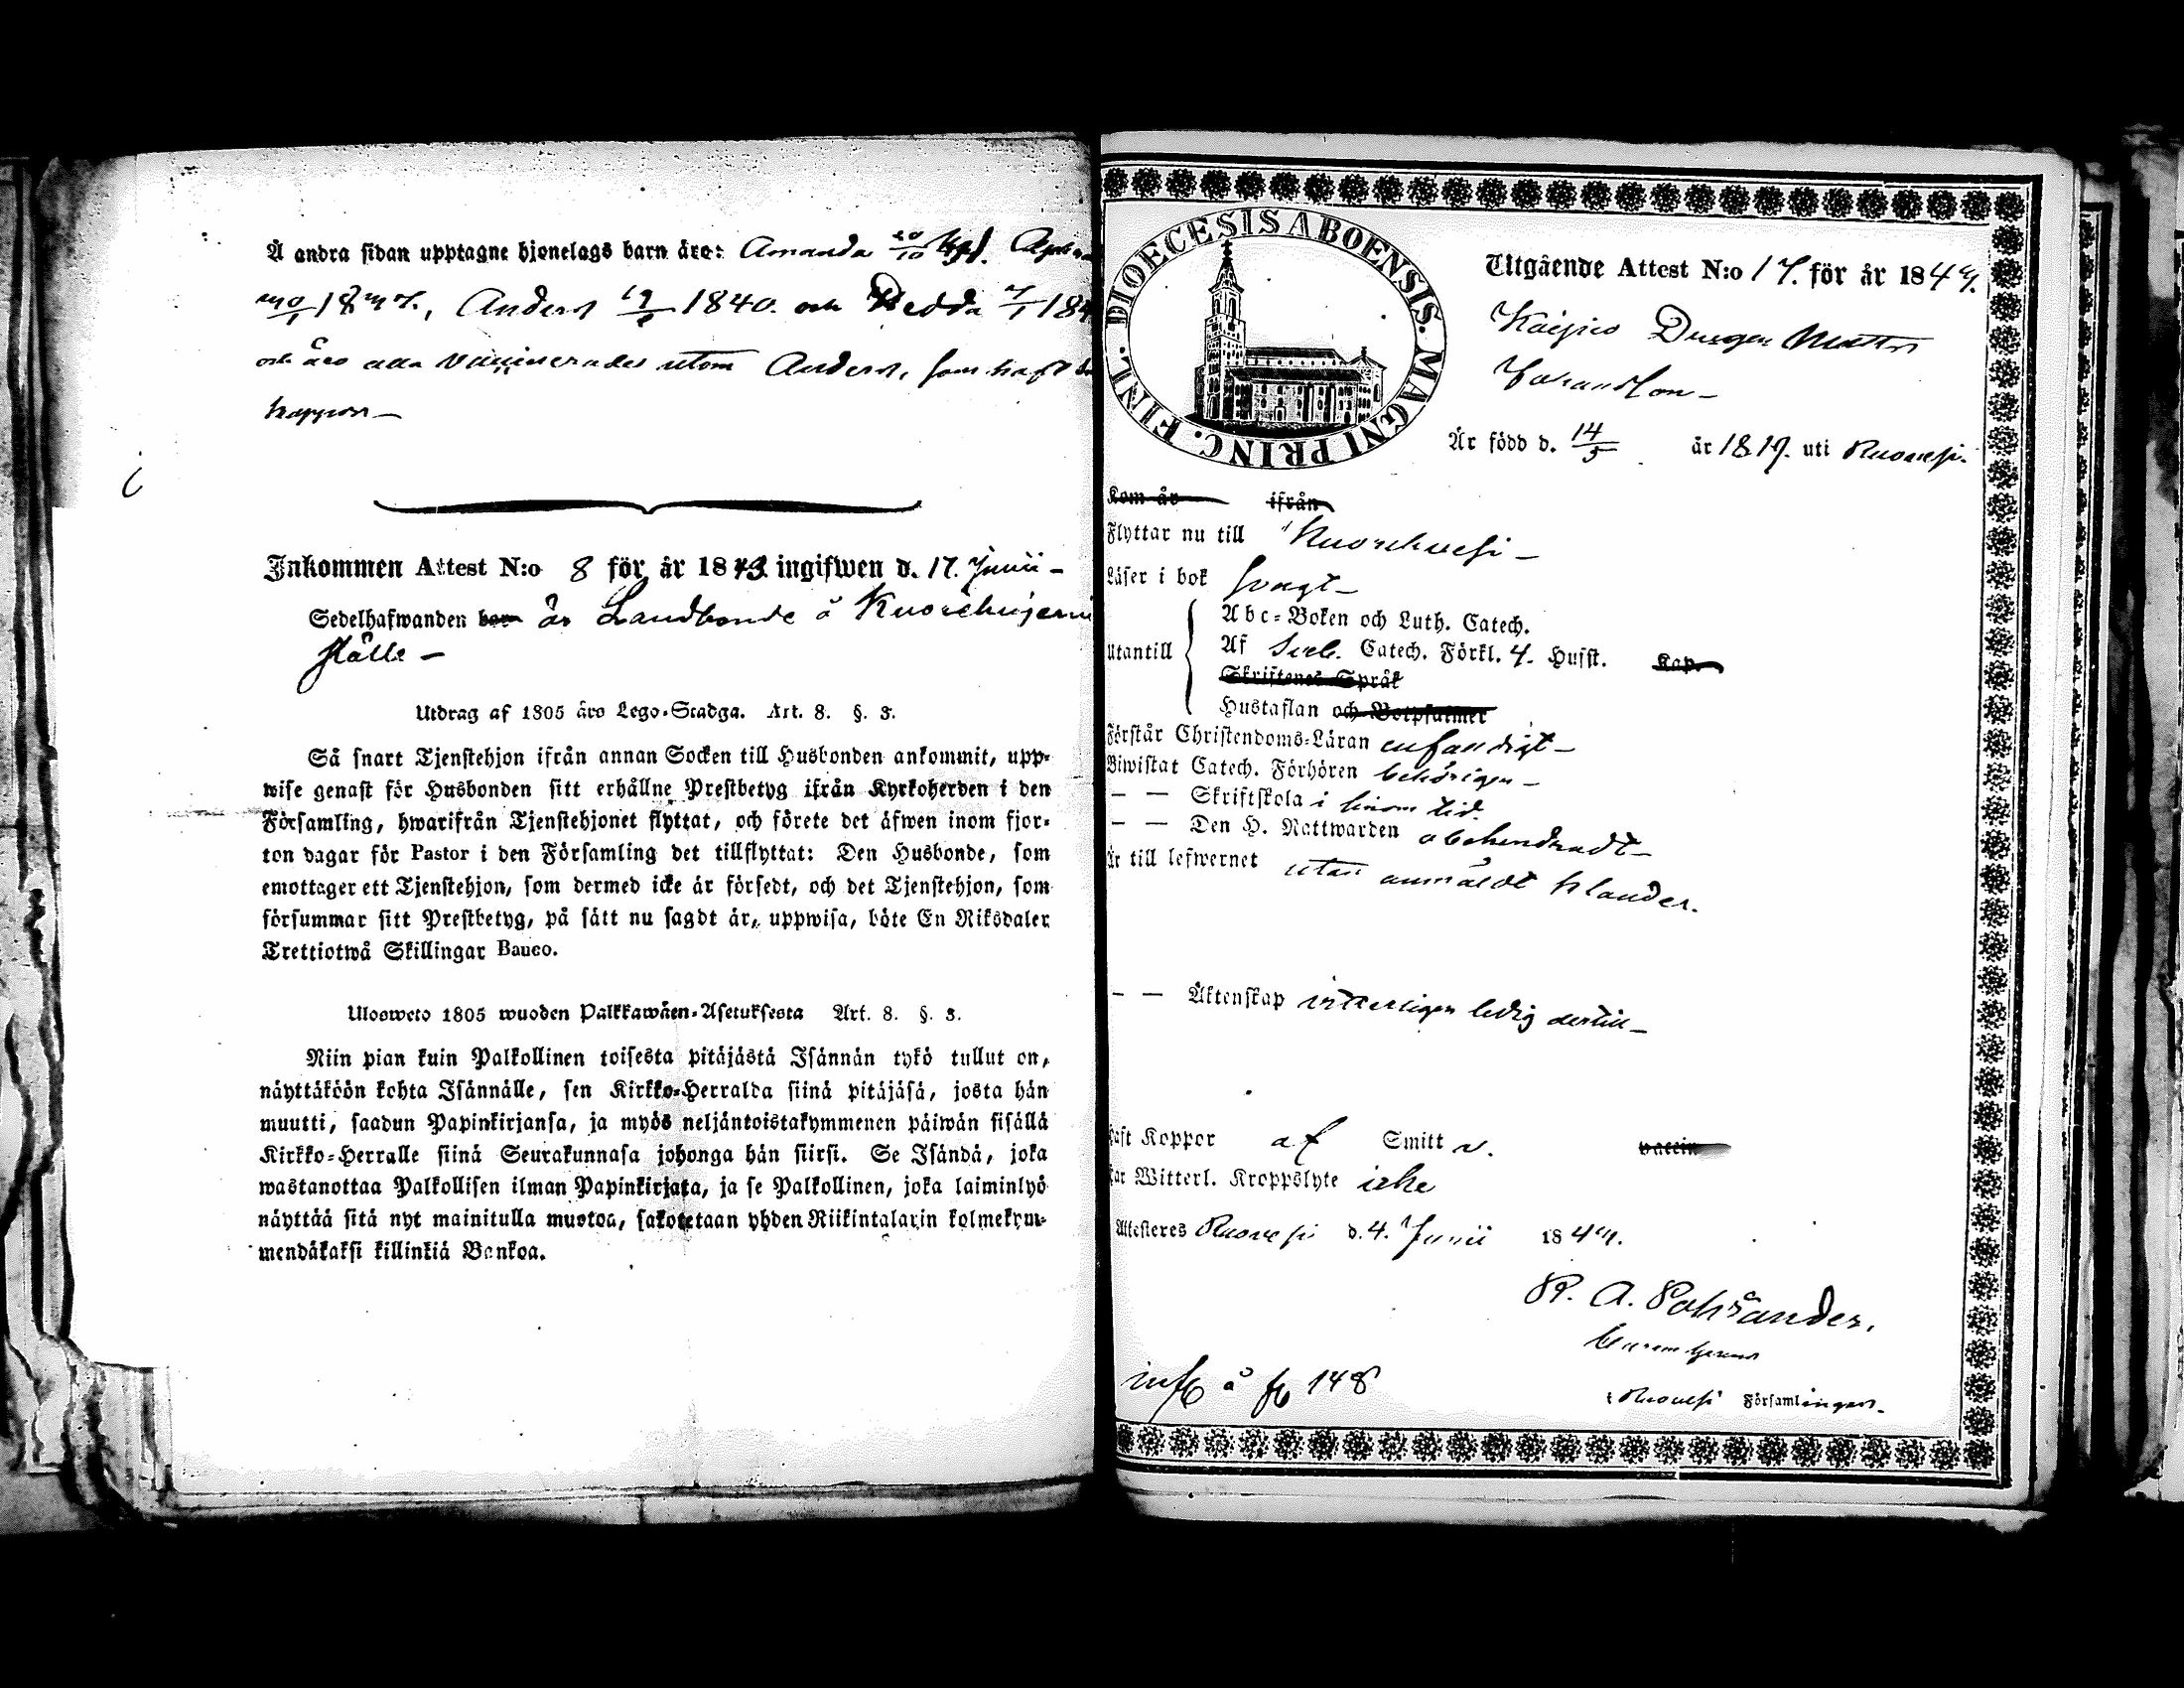 Å andra sidan upptagne hjonelags barn äro: Amanda 20/10
Anders 1840. och Hedda 7/1 184
och äro alla vaccinerade utom Anders, som haft
koppor —
Inkommen Attest N:o 8 för år 1843 ingifwen d. 17. Junii —
Sedelhafwanden är Landbonde å
ställe —
Utdrag af 1805 års Lego-Stadga. Art. 8. §. 3.
Så snart Tjenstehjon ifrån annan Socken till Husbonden ankommit, upp-
wise genast för Husbonden sitt erhållne Prestbetyg ifrån Kyrkoherden i den
Församling, hwarifrån Tjenstehjonet flyttat, och förete det äfwen inom fjor-
ton dagar för Pastor i den Församling det tillflyttat: Den Husbonde, som
emottager ett Tjenstehjon, som dermed icke är försedt, och det Tjenstehjon, som
försummar sitt Prestbetyg, på sätt nu sagdt är, uppwisa, böte En Riksdaler
Trettiotwå Skillingar Banco.
Ulosweto 1805 wuoden Palkkawäen-Asetuksesta Art. 8. §. 3.
Niin pian kuin Palkollinen toisesta pitäjästä Isännän tykö tullut on,
näyttäköön kohta Isännälle, sen Kirkko-Herralda siinä pitäjäsä, josta hän
muutti, saadun Papinkirjansa, ja myös neljäntoistakymmenen päiwän sisällä
Kirkko-Herralle siinä Seurakunnasa johonga hän siirsi. Se Isändä, joka
wastanottaa Palkollisen ilman Papinkirjata, ja se Palkollinen, joka laiminlyö
näyttää sitä nyt mainitulla muotoa, sakotetaan yhden Riikintalarin kolmekym-
mendäkaksi killinkiä Bankoa.
DIOECESIS ABOENSIS. MAGNI PRINC. FINL.
Utgående Attest N:o 17. för år 184
Drengen Matts
Är född d. 14/5 år 181 uti Ruovesi.
Kom år ifrån
Flyttar nu till Kuorehvesi —
Läser i bok svagt —
Utantill
Abc-Boken och Luth. Catech.
Af Sveb. Catech. Förkl. 4. Hufst. Kap.
Skriftenes Språk
Hustaflan och Botpsalmer
Förstår Christendoms-Läran enfaldigt —
Biwistat Catech. Förhören behörigen —
— — Skriftskola i sinom tid
— — Den H. Nattwarden obehindradt —
är till lefwernet utan anmäldt klander.
— — Äktenskap vitterligen ledig dertill —
haft Koppor af Smitt v. vaccin
har Witterl. Kroppslyte icke
Attesteres Ruovesi d. 4. Junii 184
inf å f 148
i Ruovesi Församlingen.